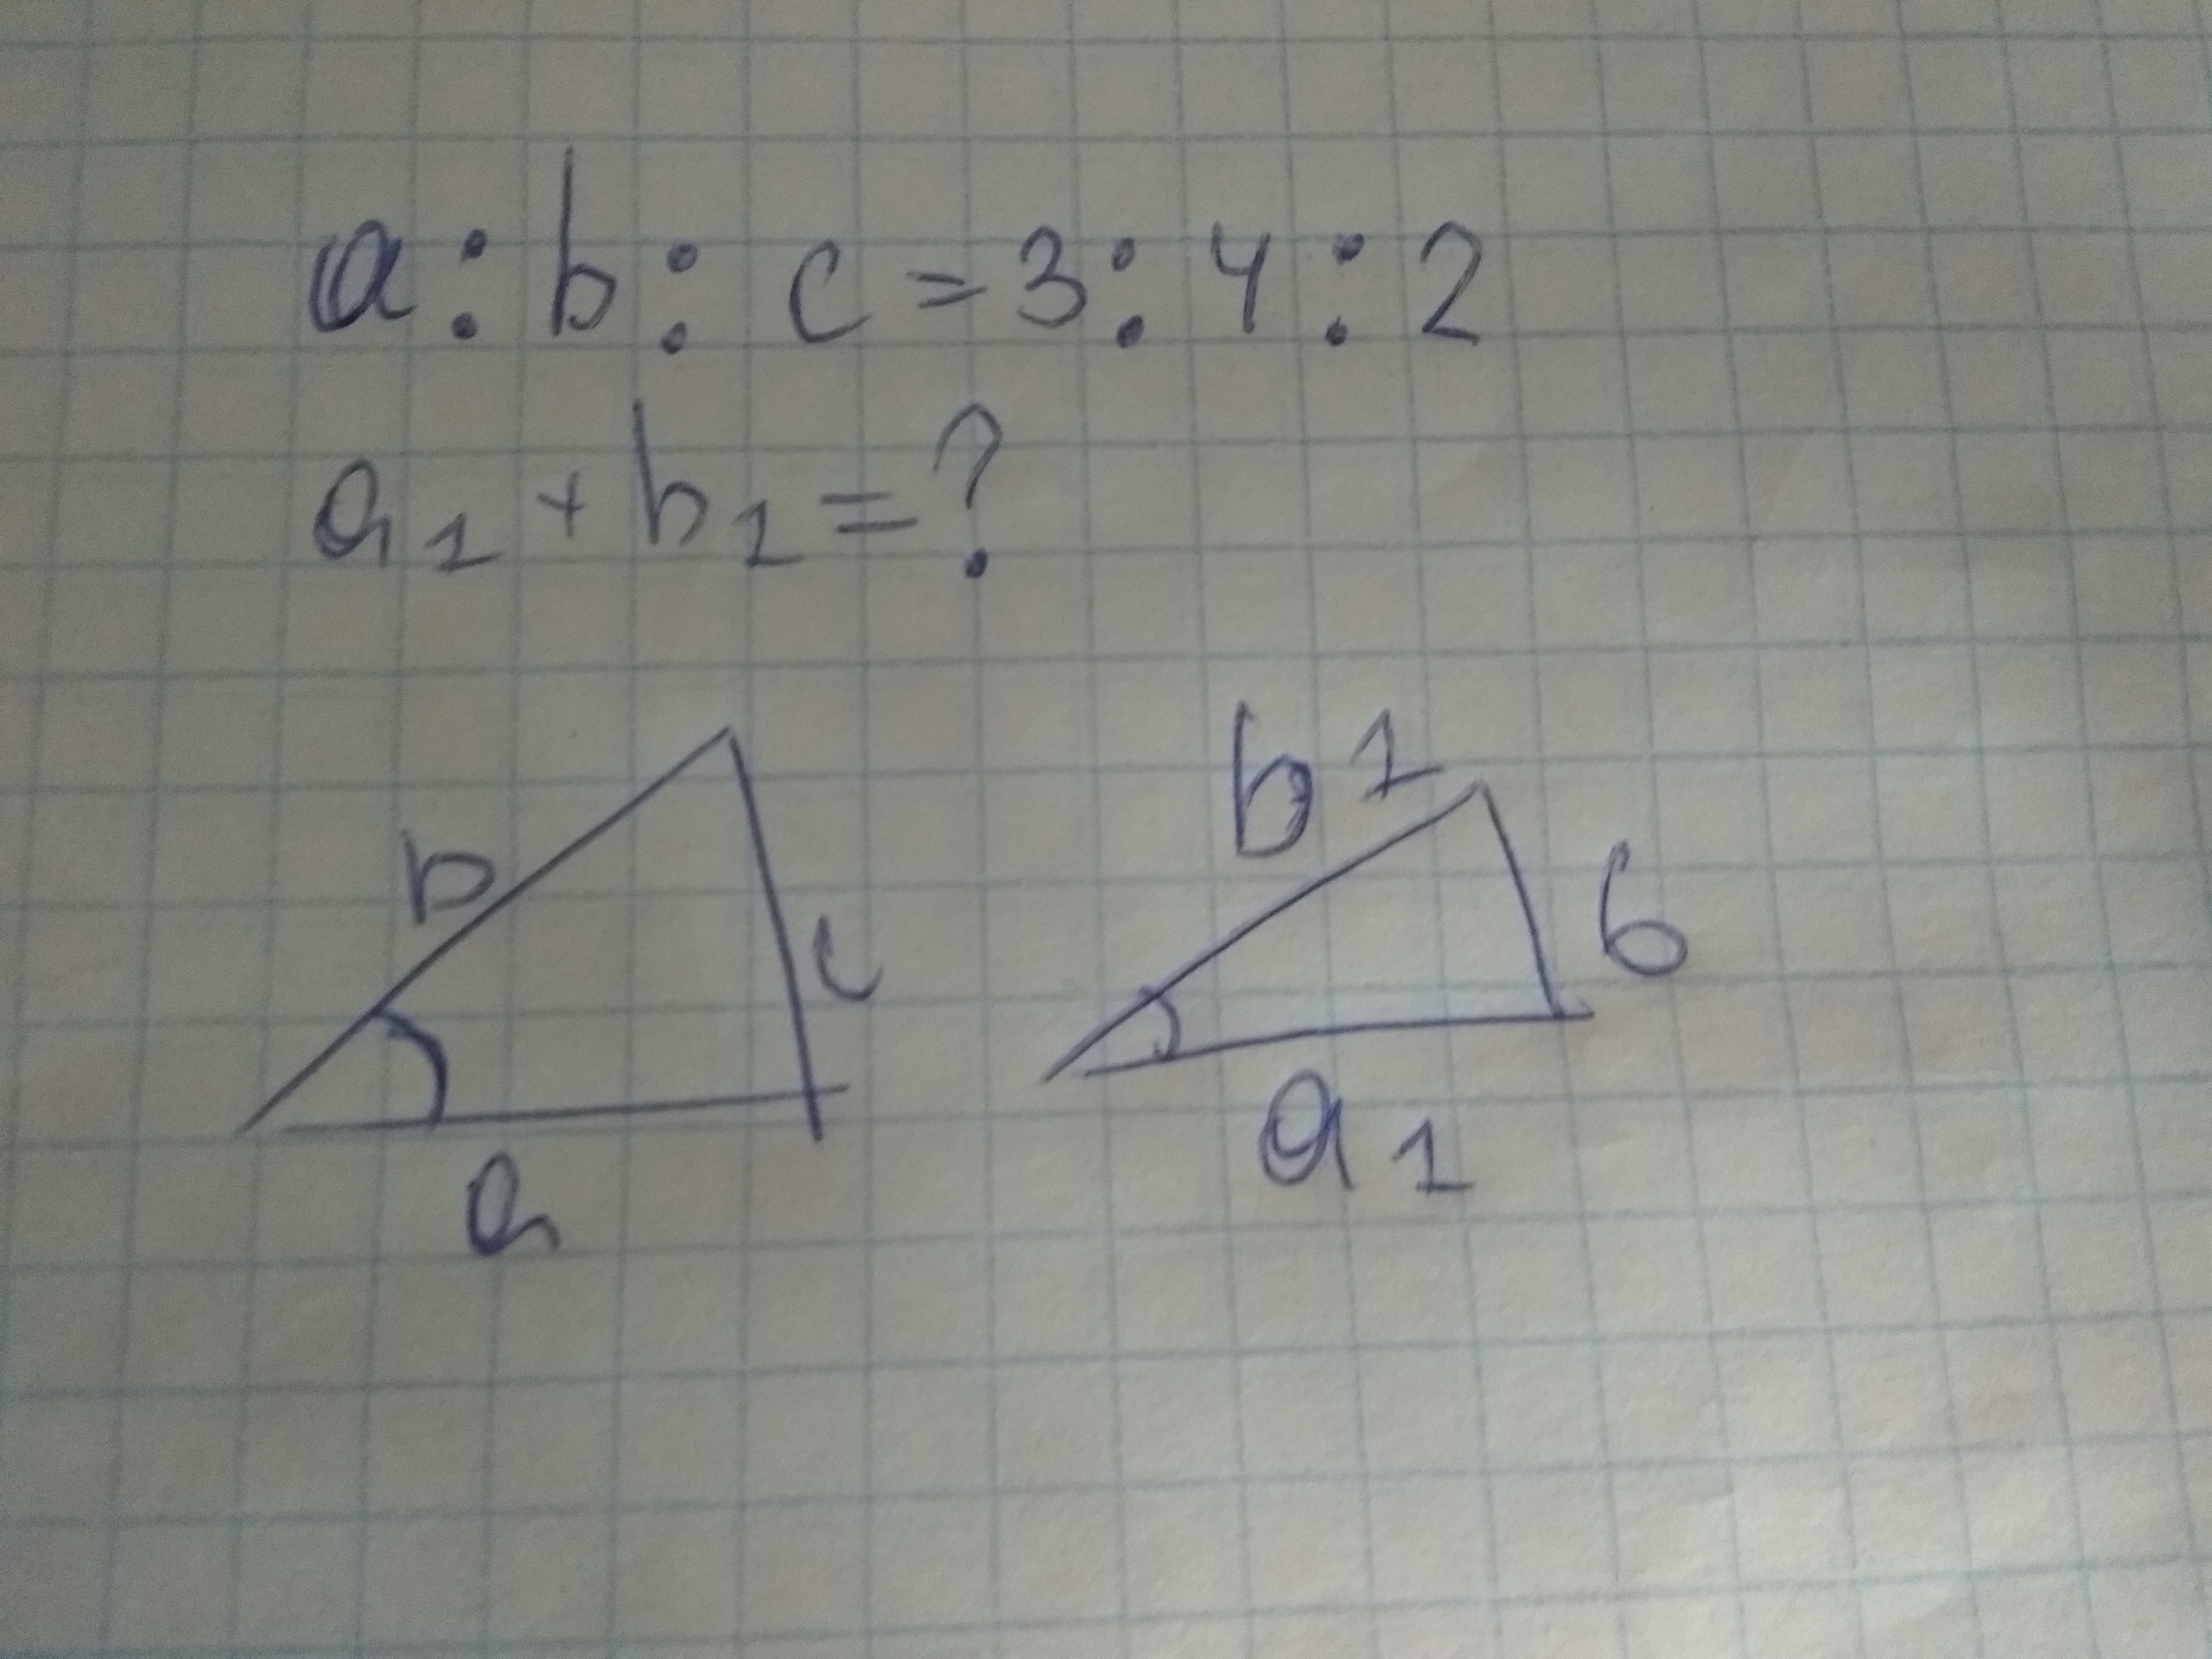 a : b : c = 3 : 4 : 2
a₁ + b₁ = ?
b
c
a
b₁
6
a₁